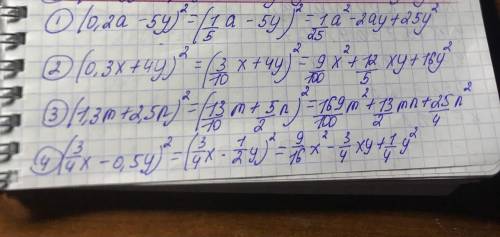 ① (0,2a - 5y)² = (1/5 a - 5y)² = 1/25 a² - 2ay + 25y²
② (0,3x + 4y)² = (3/10 x + 4y)² = 9/100 x² + 12/5 xy + 16y²
③ (1,3m + 2,5n)² = (13/10 m + 5/2 n)² = 169/100 m² + 13/2 mn + 25/4 n²
④ (3/4 x - 0,5y)² = (3/4 x - 1/2 y)² = 9/16 x² - 3/4 xy + 1/4 y²